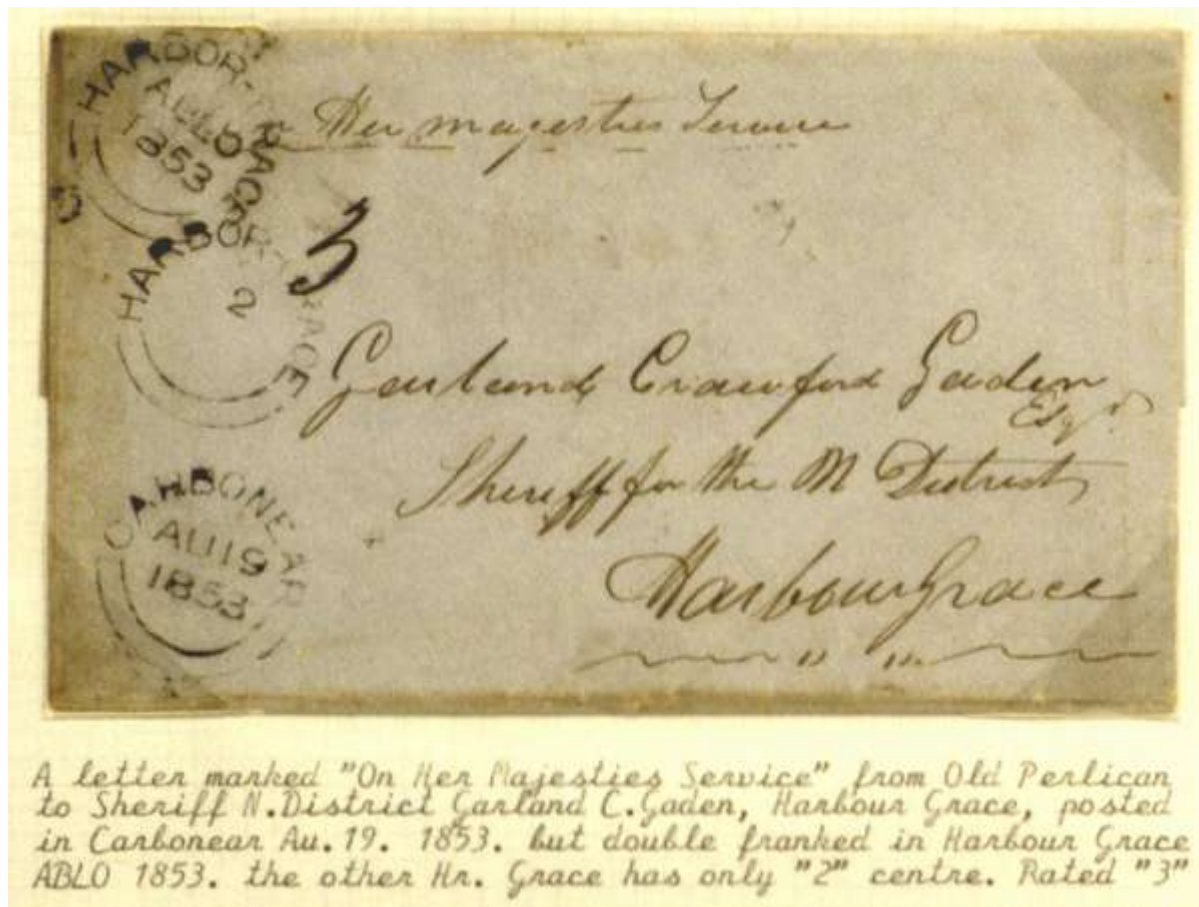 HARBOR-GRACE
ABLO
1853
Her majesties Service
3
HARBOR-GRACE
2
Garland Crawford Gaden
Esqr.
Sheriff for the N District
Harbour Grace
CARBONEAR
AU19
1853
A letter marked "On Her Majesties Service" from Old Perlican
to Sheriff N.District Garland C.Gaden, Harbour Grace, posted
in Carbonear Au.19. 1853. but double franked in Harbour Grace
ABLO 1853. the other Hr. Grace has only "2" centre. Rated "3"